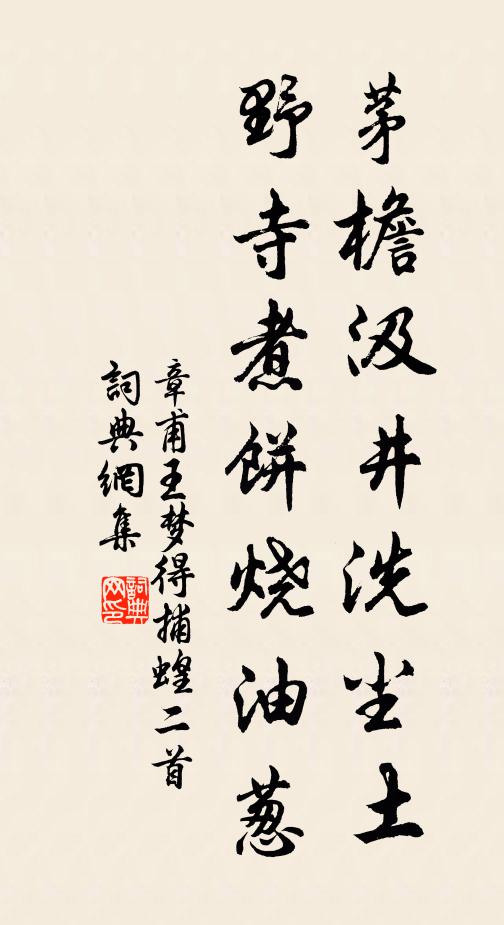 茅檐汲井洗尘土
野寺煮餅烧油葱
章甫王梦得捕蝗二首
詞典網集
詞典